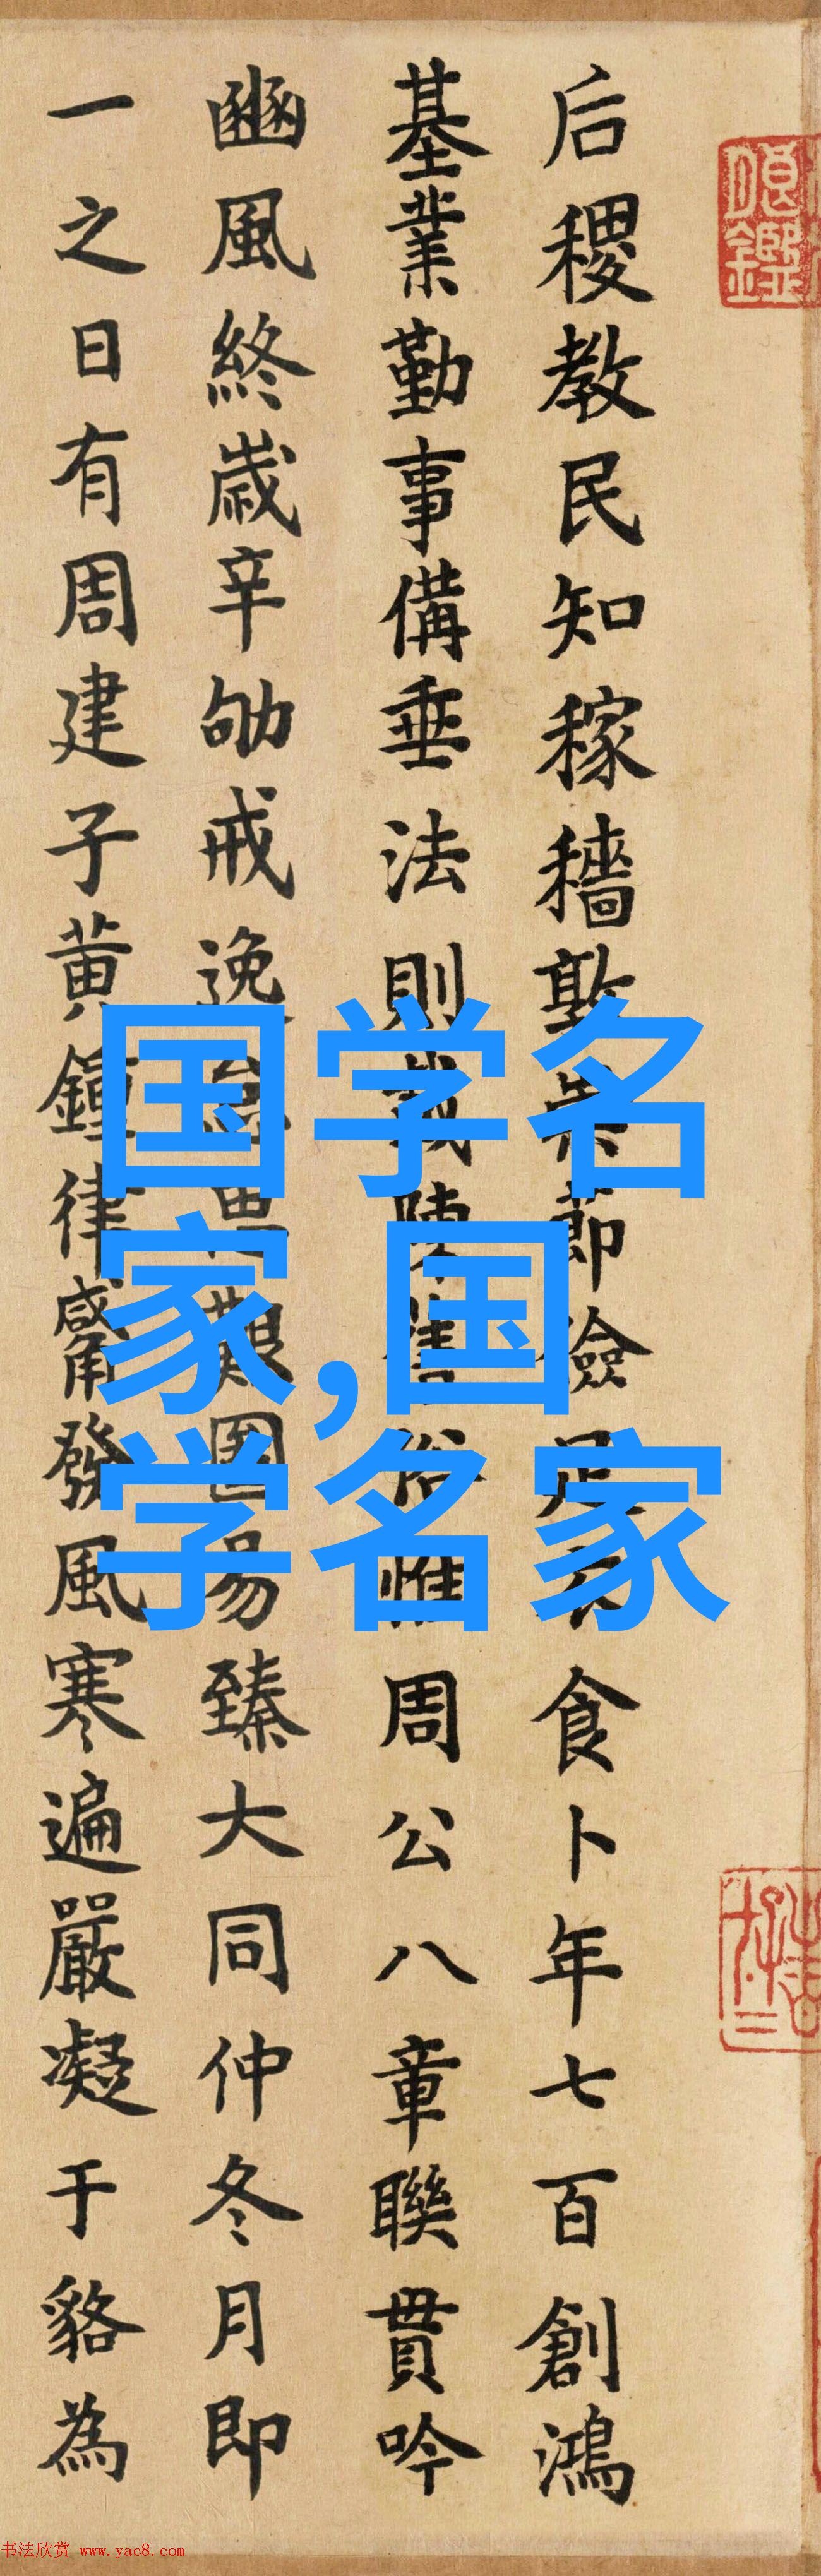 后稷教民知稼穡敦節儉足衣食卜年七百創鴻
基業勤事備垂法則載陳舊俗惟周公八章聯貫吟
豳風終歲辛劬戒逸怠思艱圖易臻大同仲冬月即
一之日有周建子黃鐘律觱發風寒遍嚴凝于貉為
国学名
家,国
学名家
书法欣赏 www.yac8.com